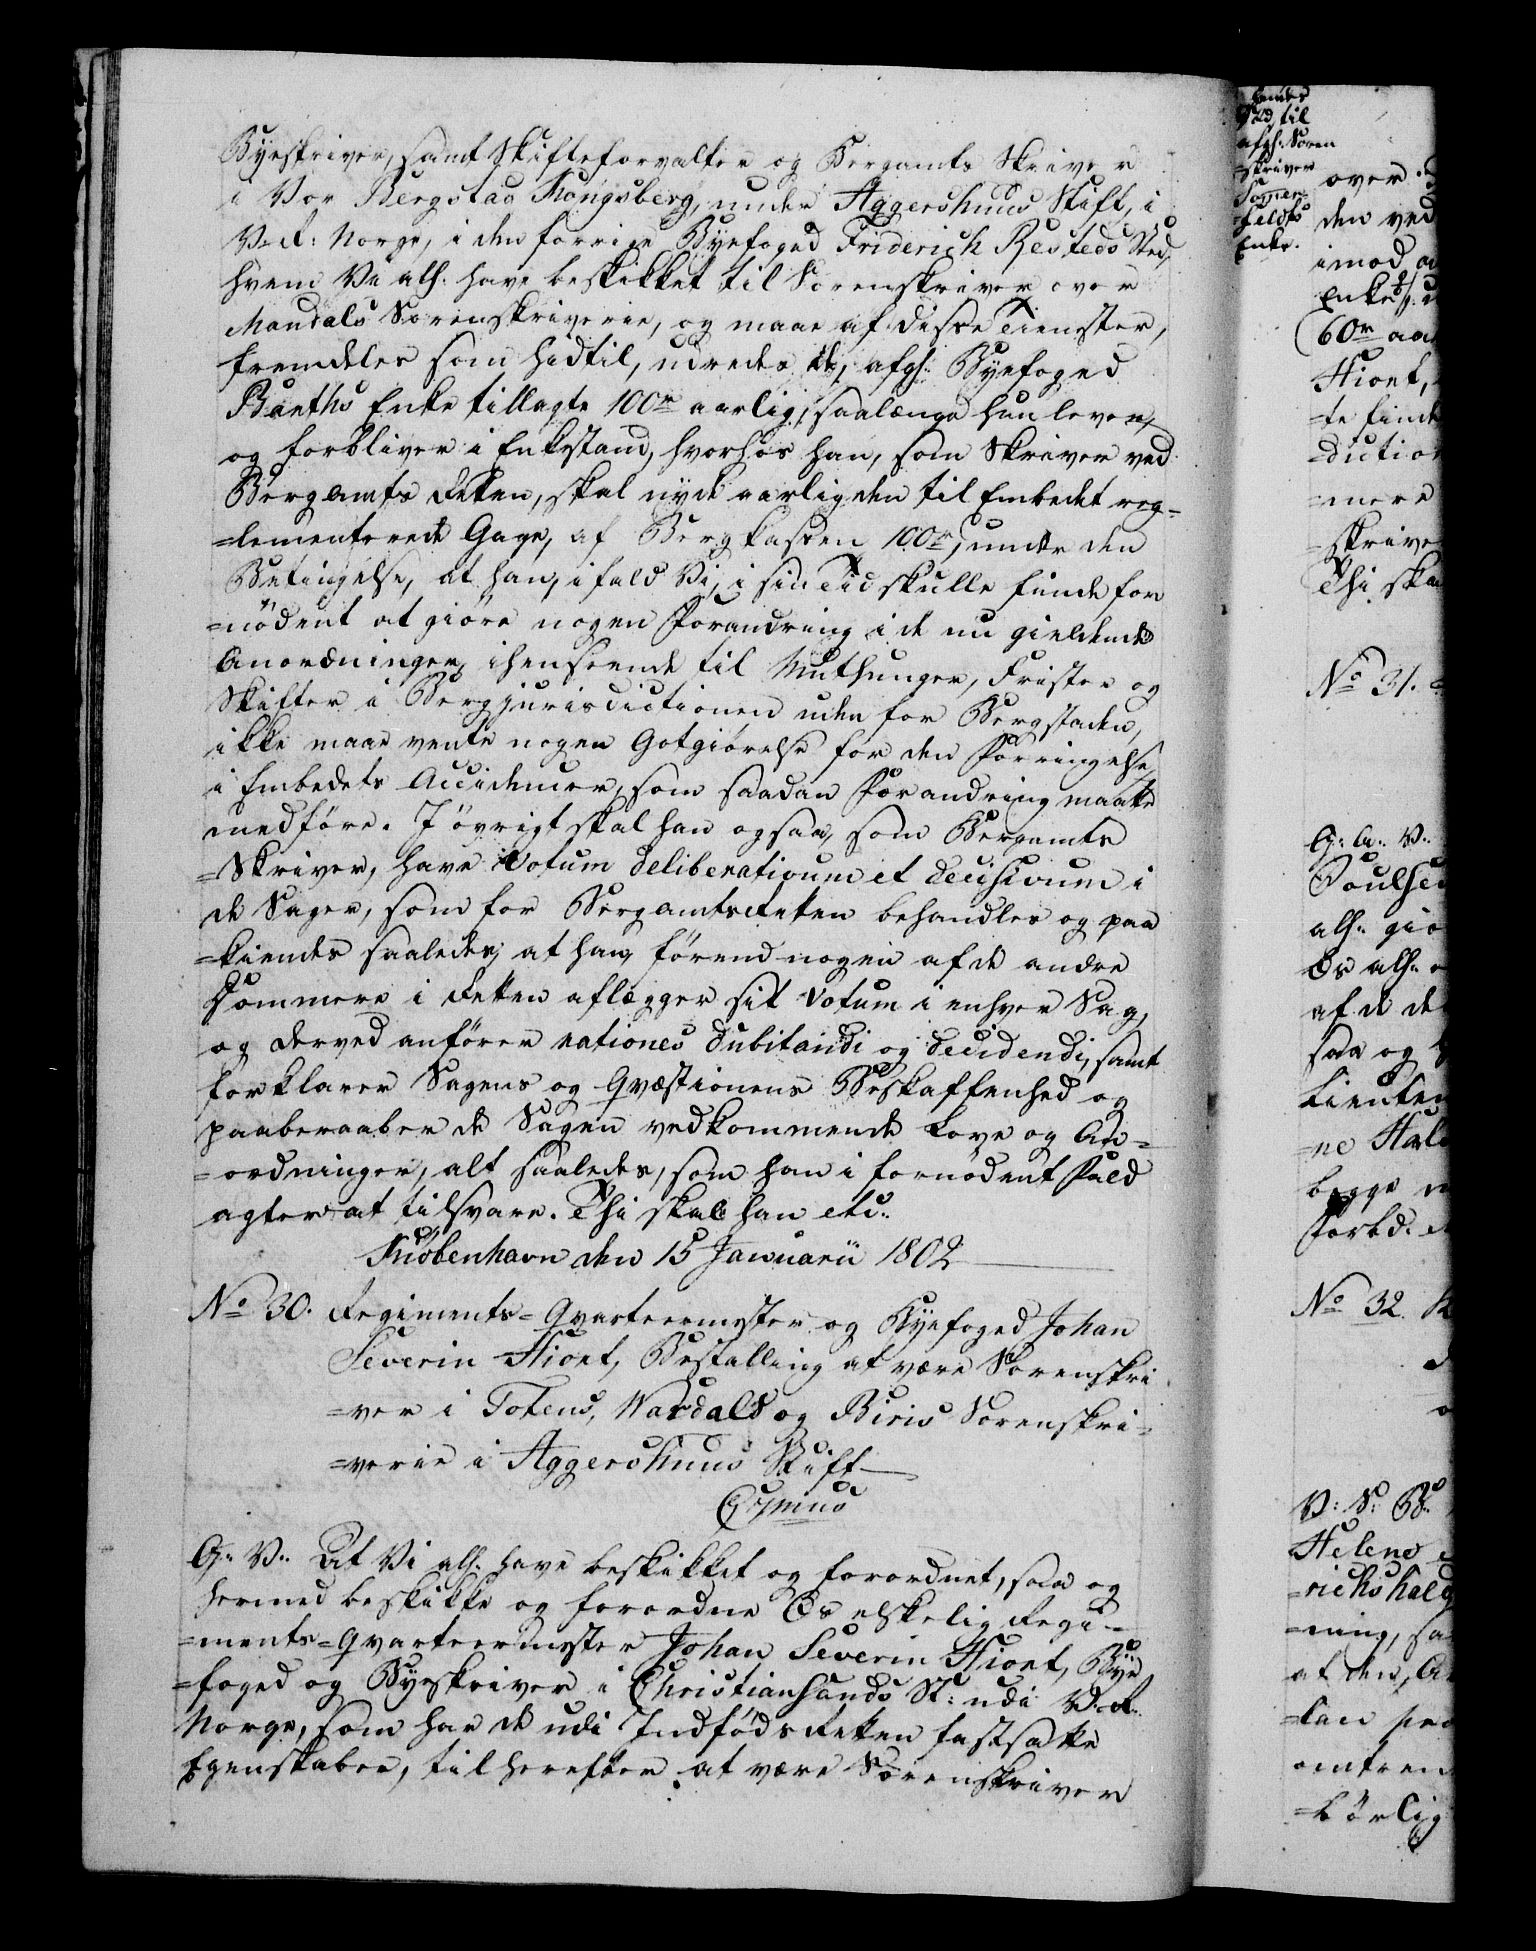 Byeskriver, samt Skifteforvalter og Bergamts Skriver
i Vor Bergstad Kongsberg, under Aggershuus Stift, i
V. R: Norge, i den forrige Byefoged Friderich Resteds Sted,
hvem Vi alh: have beskikket til Sorenskriver over
Mandals Sorenskriverie, og maae af disse Tienster,
fremdeles som hidtil, udredes de, afgh: Byefoged
Barths Enke tillagte 100r aarlig, saalænge hun lever,
og forbliver i Enkestand, hvorhos han, som Skriver ved
Bergamts Retten, skal nyde aarlig den til Embedet reg-
=lementerede Gage, af Bergkassen 100r, under den
Betingelse, at han, ifald Vi, i sin Tid skulle finde for
=nödent at giöre nogen Forandring i de nu gieldende
Anordninger, ihenseende til Muthunger, Frister og
Skifter i Bergjurisdictionen uden for Bergstaden,
ikke maae vente nogen Gotgiörelse for den Forringelse
i Embedets Accidencer, som saadan Forandring maatte
medföre. I övrigt skal han ogsaa, som Bergamts
=Skriver, have Votum deliberativum et decisivum i
de Sager, som for Bergamtsretten behandles og paa
=kiendes saaledes, at han, förend nogen af de andre
Dommere i Retten aflægger sit Votum i enhver Sag,
og derved anförer rationes dubitandi og decidendi, samt
forklarer Sagens og Qvæstionens Beskaffenhed og
paaberaaber de Sagen vedkommende Love og An=
=ordninger, alt saaledes, som han i fornödent Fald
agter at tilsvare. Thi skal han etc:
Kiöbenhavn den 15 Januarii 1802
No 30. Regiments=Qvarteermester og Byefoged Johan
Severin Hiort, Bestalling at være Sorenskri
=ver i Totens, Wardals og Biris Sorenskri=
=verie i Aggershuus Stift
G: V: At Vi alh: have beskikket og forordnet, saa og
hermed beskikke og forordne Os elskelig Regi=
=ments=Qvarteermester Johan Severin Hiort, Bye
=foged og Byeskriver i Christiansands St: udi V. R.
Norge, som har de udi Indfödsretten fastsatte
Egenskaber, til herefter at være Sorenskriver
Sted, til
afgh: Soren
=skriver
=feldts
Enke.
over
den ved
imod
Enke
(60r
Hiort,
=te finde
=diction
=mere
=skrive
Thi ska
No 31.
G: A: V:
Poulsen
alh: giö
Os alh:
af de de
saa og
Lieuten
=ne
begge
Forbd:
No 32.
V: S: B:
Helene
=richshald
=ning, sa
at den,
=kan
omtren
=börlig